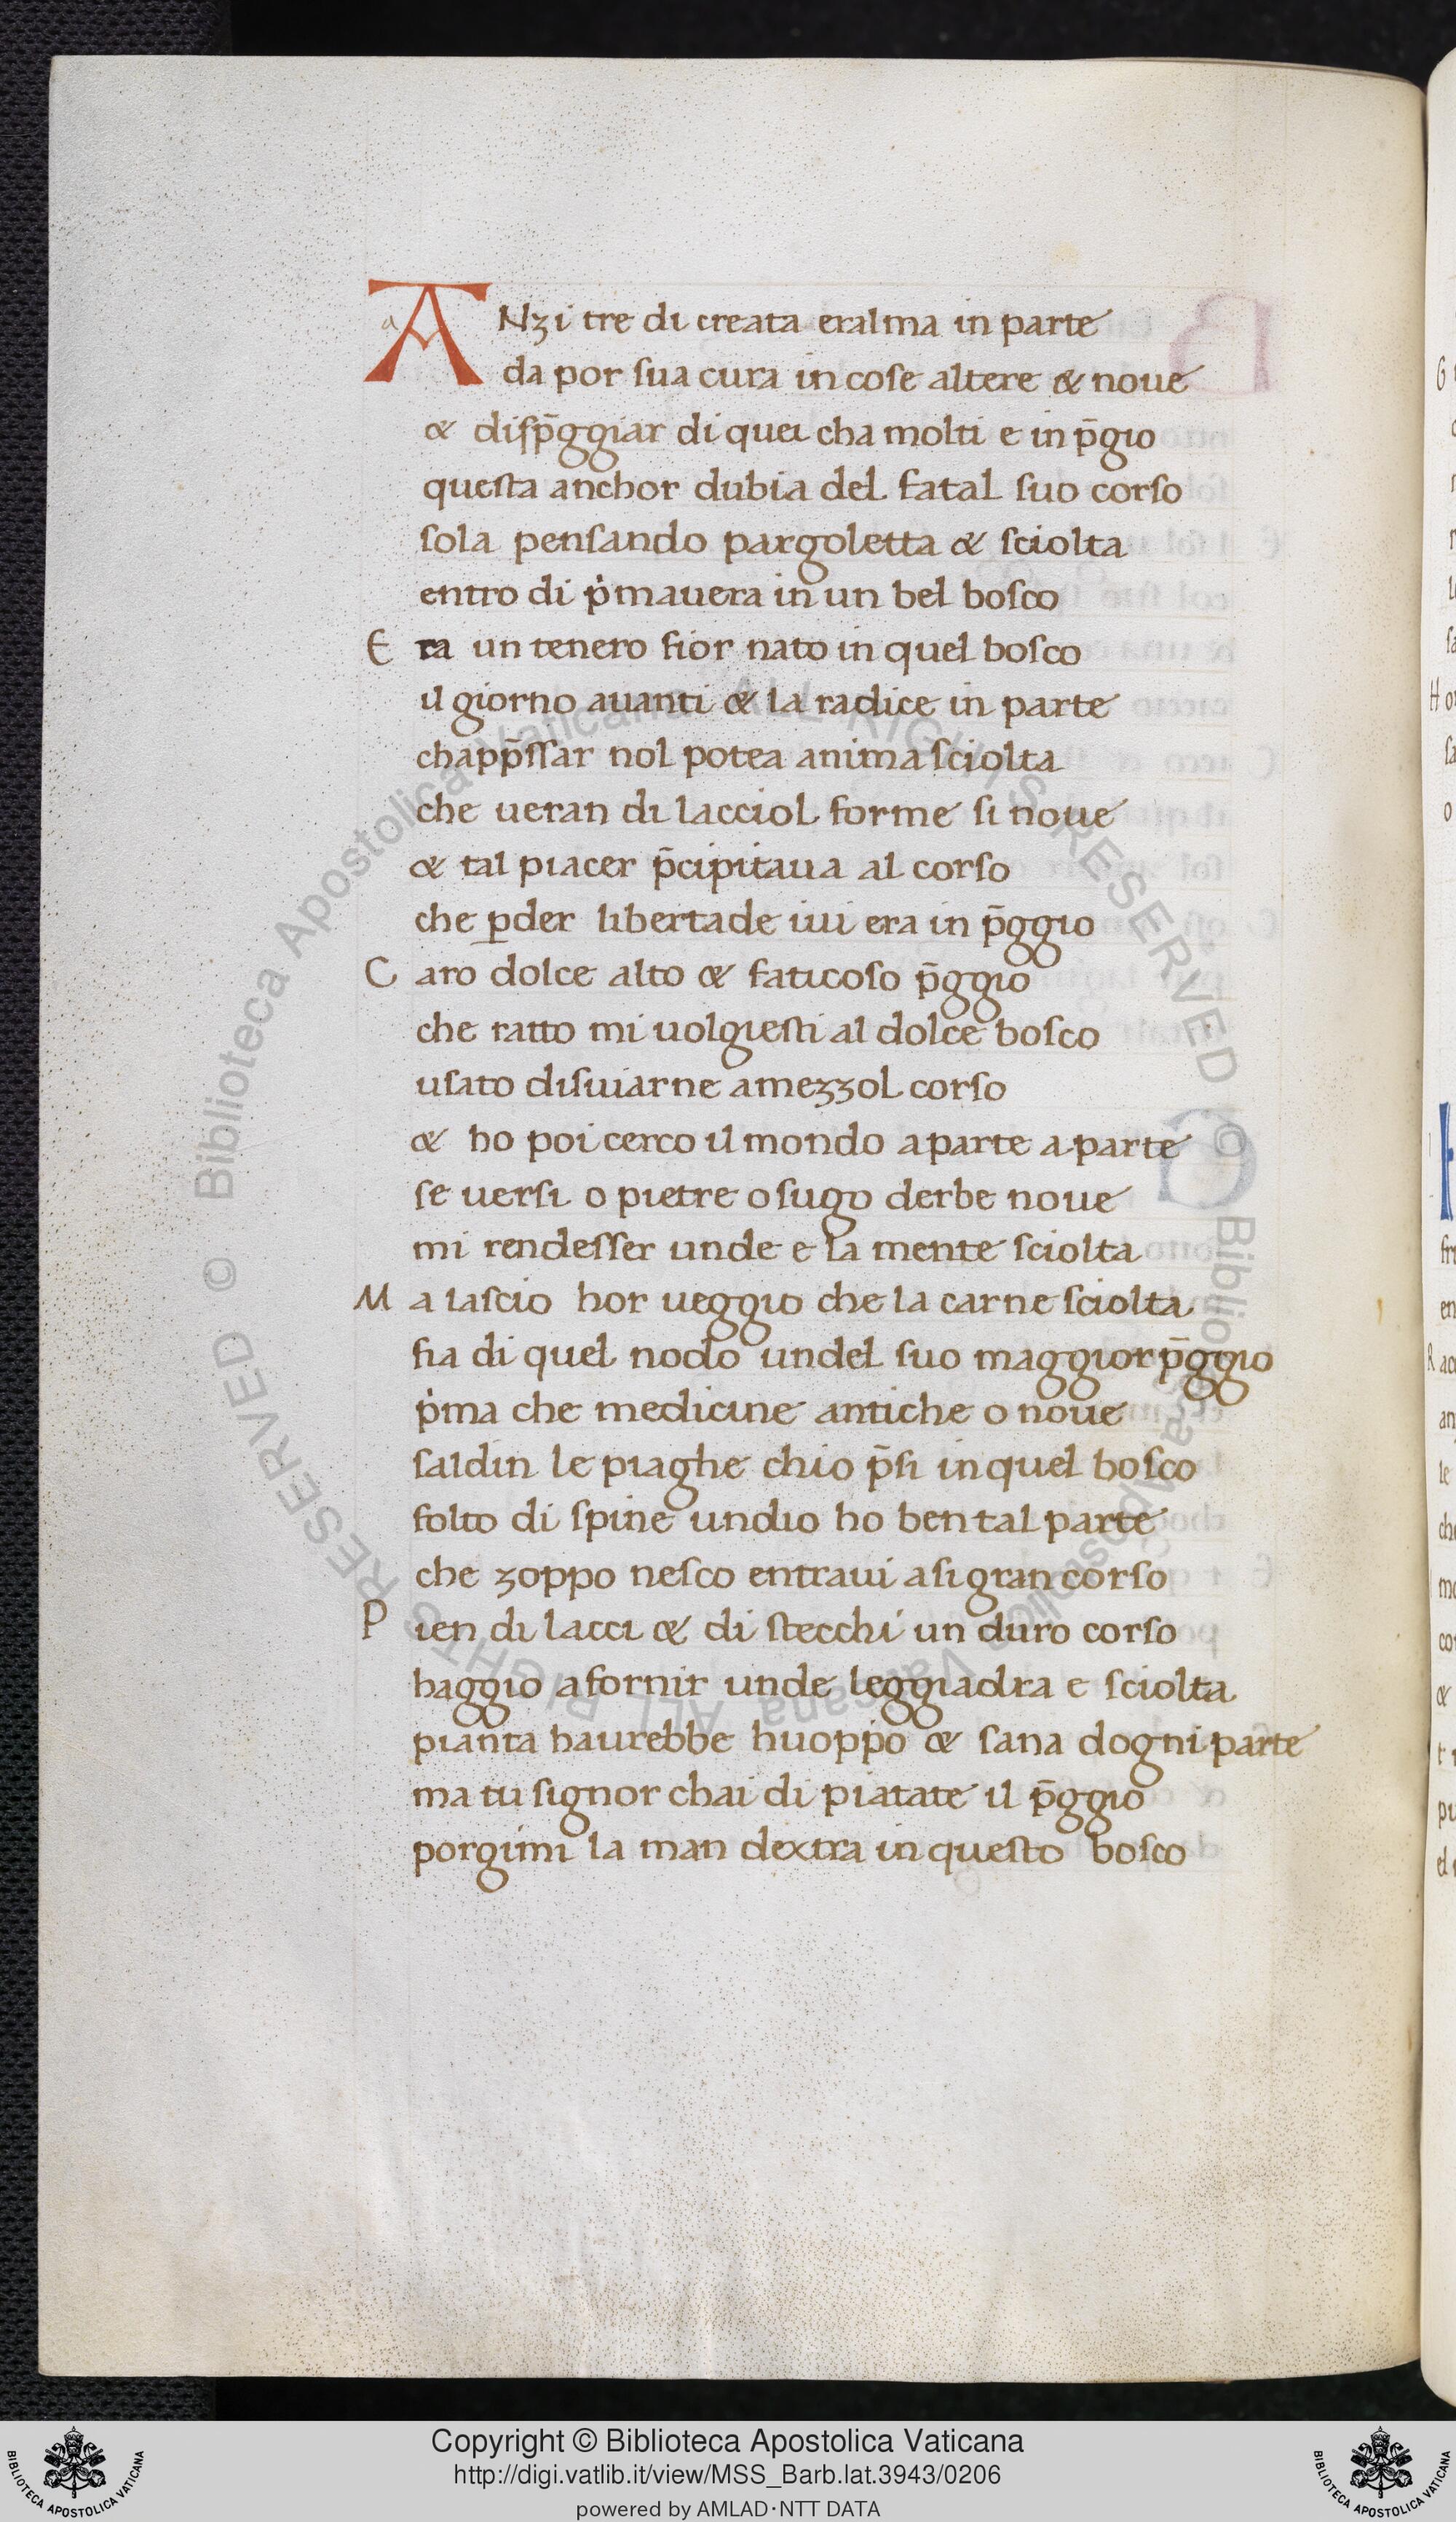 a
ANzi tre di creata eralma in parte
da por sua cura in cose altere & noue
& disp̄ggiar di quei cha molti e in p̄gio
questa anchor dubia del fatal suo corso
sola pensando pargoletta & sciolta
entro di pͥmauera in un bel bosco
E ra un tenero fior nato in quel bosco
il giorno auanti & la radice in parte
chapp̄ssar nol potea anima sciolta
che ueran di lacciol forme si noue
& tal piacer p̄cipitaua al corso
che ꝑder libertade iui era in p̄ggio
C aro dolce alto & faticoso p̄ggio
che ratto mi uolgiesti al dolce bosco
usato disuiarne amezzol corso
& ho poi cerco il mondo a parte a parte
se uersi o pietre o sugo derbe noue
mi rendesser unde e la mente sciolta
M a lascio hor ueggio che la carne sciolta
fia di quel nodo undel suo maggior p̄ggio
pͥma che medicine antiche o noue
saldin le piaghe chio p̄si in quel bosco
folto di spine undio ho ben tal parte
che zoppo nesco entraui a si gran corso
P ien di lacci & di stecchi un duro corso
haggio a fornir unde leggiadra e sciolta
pianta haurebbe huoppo & sana dogni parte
ma tu signor chai di piatate il p̄ggio
porgimi la man dextra in questo bosco
© Biblioteca Apostolica Vaticana ALL RIGHTS RESERVED © Biblioteca Apostolica Vaticana ALL RIGHTS RESERVED
Copyright © Biblioteca Apostolica Vaticana
http://digi.vatlib.it/view/MSS_Barb.lat.3943/0206
powered by AMLAD·NTT DATA
BIBLIOTECA APOSTOLICA VATICANA
BIBLIOTECA APOSTOLICA VATICANA